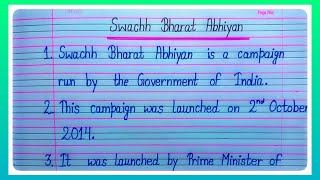 Swachh Bharat Abhiyan
1. Swachh Bharat Abhiyan is a campaign
run by the Government of India.
2. This campaign was launched on 2nd October
2014.
3. It was launched by Prime Minister of